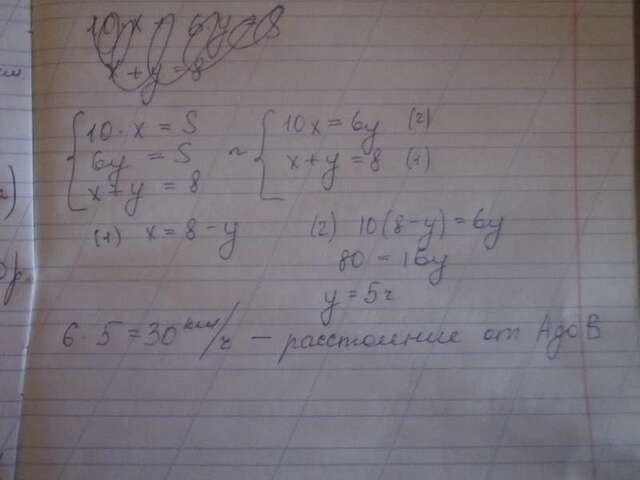 10x + 6y = 8
x + y = 8
{ 10 · x = S
6y = S
x + y = 8
~ { 10x = 6y (2)
x + y = 8 (1)
(1) x = 8 - y
(2) 10(8-y) = 6y
80 = 16y
y = 5ч
6 · 5 = 30 км/ч - расстояние от A до B